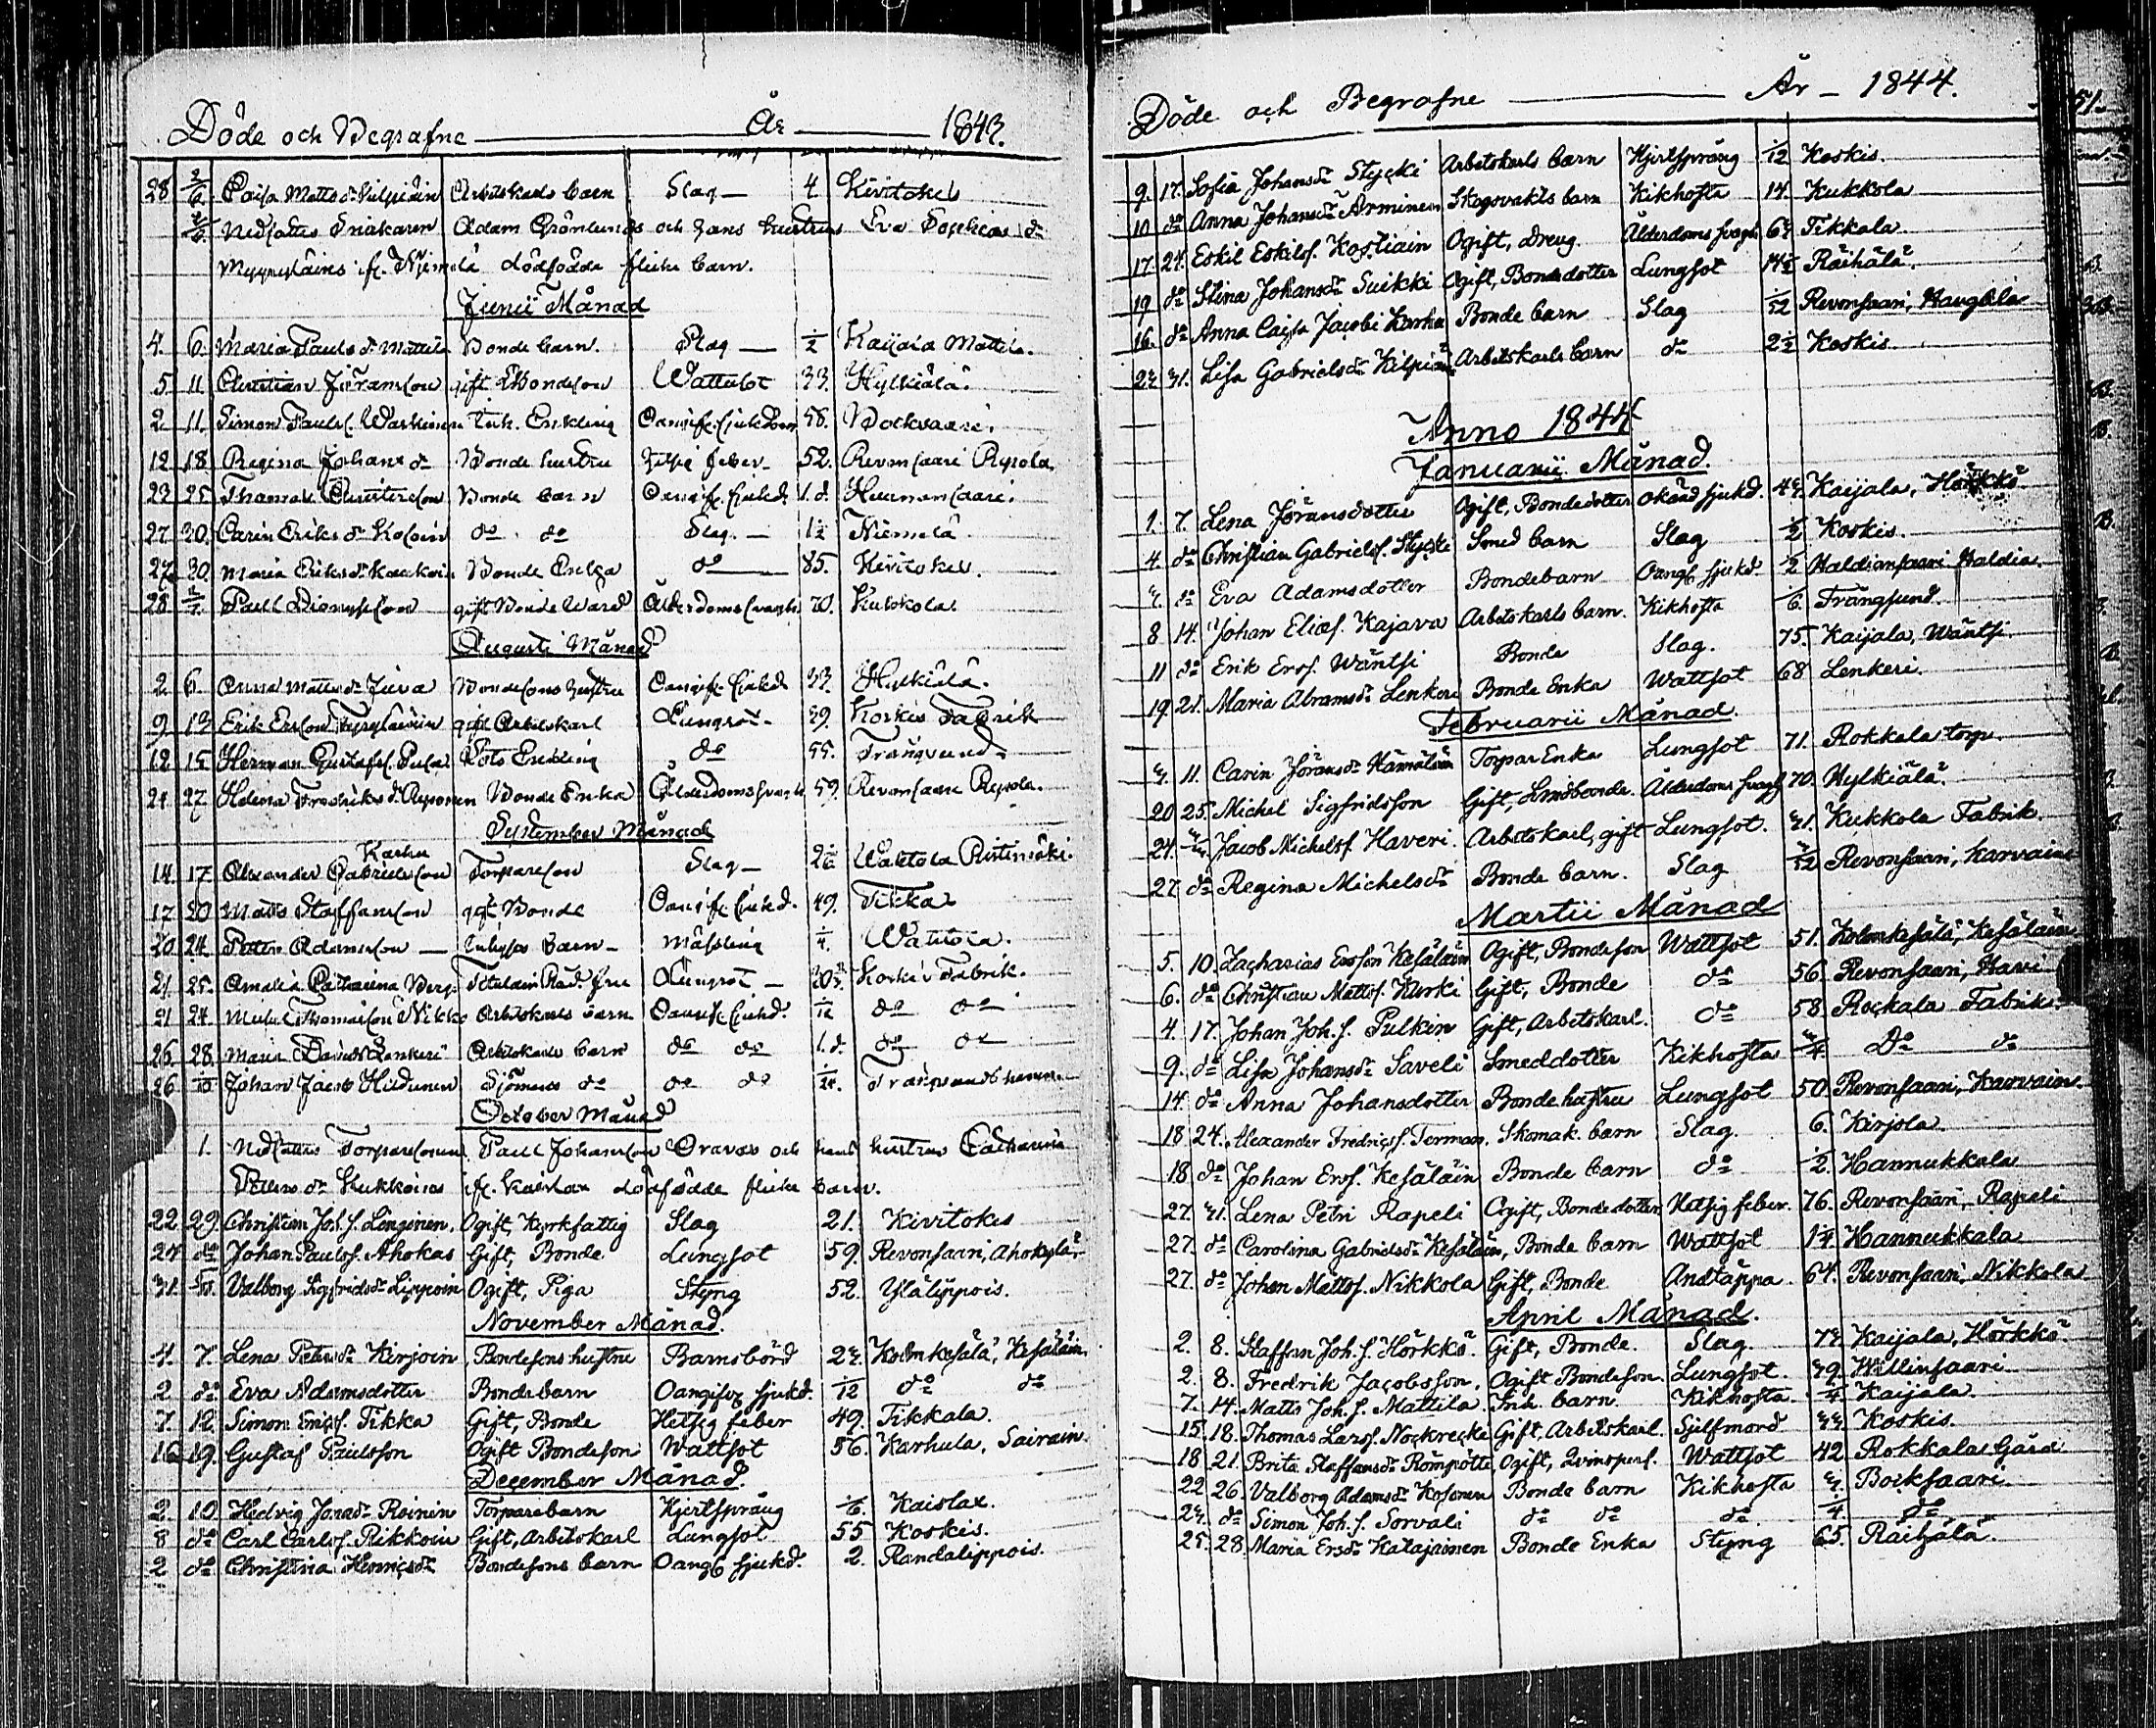 Döde och Begrafne År 1843.
28 2/6 Caisa Matts dr Kilpiäin Arbetskarls barn Slag 4 Kivitokes
2/6 Nedsattes Snickaren Adam Grönlunds och hans hustrus Eva Sophias dr
fr. Niemelä dödfödde flicke barn.
Junii Månad
4. 6. Maria Pauls dr Mattila Bonde barn. Slag 1/2 Kaijala Mattila.
5 11 Christian Jöransson gift Bondeson Wattusot 33. Hylkiälä.
2 11. Simon Paulss. Inh. Enkling Oangif. sjukdom 58. Bocksaari.
12 18 Regina Johans dr Bonde hustru Hetsig feber 52. Revonsaari Repola
23 25 Thomas Christersson Bonde barn Oangif. sjukd. 1. d. Huunonsaari.
27 30. Carin Eriks dr Kosoin do do Slag. 1 1/2 Niemelä.
27 30. Maria Eriks dr Bonde Enka do 85. Kivitokes.
28 2/7 Paull Dionyssson gift Bonde Ålderdomssvagh. 70. Kukkola
Augusti Månad
2 6. Anna Matts dr Juva Bondesons hustru Oangif. sjukd. 33. Hylkiälä.
9 13 Erik Ersson gift Arbetskarl Lungsot 39. Koskis Fabrik
12 15 Herman Gustafss. Enkling do 55. Trångsund
21 27 Helena Fredriks d. Reponen Bonde Enka Ålderdomssvagh. 59. Revonsaari Repola.
September Månad
Karhu
14. 17. Alexander Gabrielsson Torpareson Slag 2 1/6 Wahtola Ristimäki.
17 20 Matts Staffansson gift Bonde Oangif. sjukd. 49. Tikkala
20 24 Petter Adamsson Inhyses barn Mässling 1/4. Wahtola.
21. 25. Amalia Catharina Berg Lungsot Koskis Fabrik.
21 24. Michel Thomasson Nikko Arbetskarls barn Oangif. sjukd. 1/12 do do
26 28. Maria Davidsdr Lenkeri Arbetskarls barn do do 1. d. do do
26 1/10 Johan Jacobs Hildunen Sjömans do do do 1/24. Trångsunds hamn.
October Månad
1. Nedsattes Torparesonens Paul Johansson Oravas och hans hustrus Catharina
Petters dr Kukkoinas fr. Kaislax dödfödde flicke barn.
22. 29. Christian Joh.s. Linginen. Ogift, Kyrkfattig Slag 21. Kivitokes
24. do Johan Paulss. Ahokas Gift, Bonde Lungsot 59. Revonsaari, Ahokylä.
31. 5/10. Valborg Sigfridsdr Lippoin Ogift, Piga Styng 52. Ylälippois.
November Månad.
4. 7. Lena Petersdr Kirjoin Bondesons hustru Barnsbörd 23. Kolmkesälä, Kesäläin.
2 do Eva Adamsdotter Bondebarn Oangifvg sjukd. 1/12 do do
7 12. Simon Ericss. Tikka Gift, Bonde Hetsig feber 49. Tikkala.
16. 19. Gustaf Paulsson Ogift Bondeson Wattsot 56. Karhula, Sairain
December Månad.
2. 10 Hedvig Jonadr Roinin Torparebarn Hjertsprång 1/6. Kaislax.
8 do Carl Carlss. Rikkoin Gift, Arbetskarl Lungsot 55 Koskis.
2 do Christina Henricsdr Bondesons barn Oangf sjukd. 2. Randalippois.
Döde och Begrafne År – 1844.
9. 17. Sofia Johansdr Stycki Arbetskarls barn Hjertsprång 1/12 Koskis.
10 do Anna Johansdr Arminen Skogsvakts barn Kikhosta 14. Kukkola
17. 24. Eskil Eskilss. Kostiain Ogift, dreng. Ålderdoms svagh. 63. Tikkala.
19 do Stina Johansdr Suikki Ogift, Bondedotter Lungsot 14 1/2 Räihälä.
16. do Anna Caisa Jacobi Karhu Bonde barn Slag 1/52 Revonsaari,
23. 31. Lisa Gabrielsdr Kilpiäin Arbetskarls barn do 2 1/2 Koskis.
Anno 1844
Januarii Månad.
1. 7. Lena Jöransdotter Ogift, Bondedotter okänd sjukd. 43. Kaijala, Hörkkö
4 do Christian Gabrielss. Stycke Smed barn Slag 1/2 Koskis.
3. do Eva Adamsdotter Bondebarn Oangf sjukd. 1/2 Haldiansaari Haldia.
8 14. Johan Eliæs. Kajava Arbetskarls barn. Kikhosta 1/6. Trångsund.
11 do Erik Erss. Wäntsi Bonde Slag. 75. Kaijala, Wäntsi
19. 21. Maria Abramsdr Lenkeri Bonde Enka Wattsot 68 Lenkeri.
Februarii Månad.
3. 11. Carin Jöransdr Hämäläin Torpar Enka Lungsot 71. Rokkala torp.
20 25. Michel Sigfridsson Gift, Landbonde. Ålderdoms svagh 70. Hylkiälä.
24. 3/3 Jacob Michelss. Haveri. Arbetskarl, gift Lungsot. 31. Kukkola Fabrik.
27. do Regina Michelsdr Bonde barn. Slag 3/52 Revonsaari, Karvain
Martii Månad
5. 10. Zacharias Ersson Kesäläin Ogift, Bondeson Wattsot 51. Kolmkesälä, Kesäläin
6. do Christian Mattss. Kurki Gift, Bonde do 56. Revonsaari, Havi
4. 17. Johan Joh.s. Pulkin Gift, Arbetskarl. do 58. Rockala Fabrik.
9. do Lisa Johansdr Saveli Smeddotter Kikhosta 3/4. Do do
14. do Anna Johansdotter Bondehustru Lungsot 50. Revonsaari, Karvain
18. 24. Alexander Fredricss. Terman. Skomak. barn Slag. 6. Kirjola
18. do Johan Erss. Kesäläin Bonde barn do 1/2. Hannukkala
27. 31. Lena Petri Rapeli Ogift, Bondedotter Hetsig feber. 76. Revonsaari, Rapeli
27. do Carolina Gabrielsdr Kesäläin, Bonde barn Wattsot 1 1/4. Hannukkala
27. do Johan Mattss. Nikkola Gift, Bonde Andtäppa 64. Revonsaari, Nikkola
April Månad.
2. 8. Staffan Joh.s. Hörkkö. Gift, Bonde. Slag. 73. Kaijala, Hörkkö.
2. 8. Fredrik Jacobsson, Ogift Bondeson. Lungsot. 39. Willinsaari
7. 14. Matts Joh.s. Mattila Inh. barn. Kikhosta. 1/4. Kaijala.
15. 18. Thomas Larss. Nockrecke Gift, Arbetskarl. Sjelfmord 33. Koskis.
18 21. Brita Staffansdr Römpötti, Ogift, Qvinspers. Wattsot 42 Rokkala Gård
22 26. Valborg Adamsdr Kosonen Bonde barn Kikhosta 3. Bocksaari.
23. do Simon Joh.s. Sorvali do do do 1/4 do
25. 28. Maria Ersdr Katajainen Bonde Enka Styng 65. Raihälä.
51.